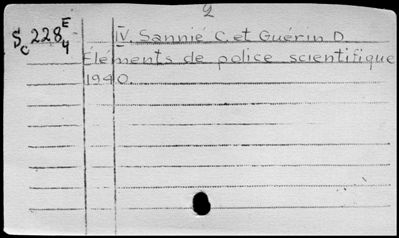 2
Sc 228 E 4 IV. Sannié C. et Guérin D.
Éléments de police scientifique
1940.